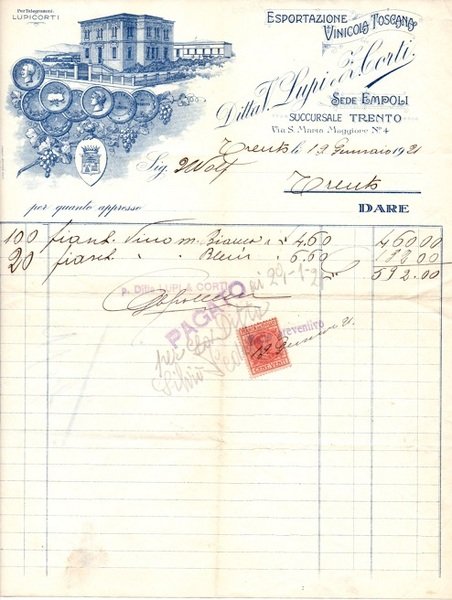 Per Telegrammi:
LUPICORTI
ESPORTAZIONE
VINICOLA TOSCANA
Ditta V. Lupi & F. Corti
SEDE EMPOLI
SUCCURSALE TRENTO
Via S. Maria Maggiore Nº 4
Trento li 19 Gennaio 1921
Sig. Wolf
Trento
per quanto appresso
DARE
100 fiaschi Vino m. Bianco a £ 4.60 460.00
20 fiaschi " " 6.60 132.00
592.00
p. Ditta LUPI & CORTI
PAGATO
29-1-21
per la Ditta
Silvio
preventivo
CENT. VENTI